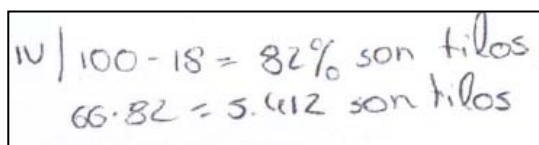 IV| 100 - 18 = 82% son tilos
66·82 = 5.412 son tilos